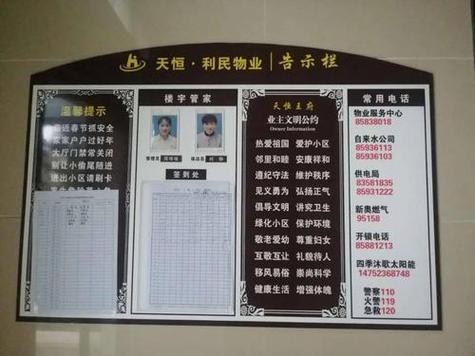 天恒·利民物业 告示栏
温馨提示
临近春节抓安全
家家户户过好年
大厅门禁常关闭
别让小偷尾随进
进出小区请刷卡
楼宇管家
签到处
天恒王府
业主文明公约
Owner Information
热爱祖国 爱护小区
邻里和睦 安康祥和
遵纪守法 维护秩序
见义勇为 弘扬正气
倡导文明 讲究卫生
绿化小区 保护环境
敬老爱幼 尊重妇女
互敬互让 礼貌待人
移风易俗 崇尚科学
健康生活 增强体魄
常用电话
物业服务中心
85838018
自来水公司
85936113
85936103
供电局
83581835
85931222
新奥燃气
95158
开锁电话
85881213
四季沐歌太阳能
14752368748
警察110
火警119
急救120